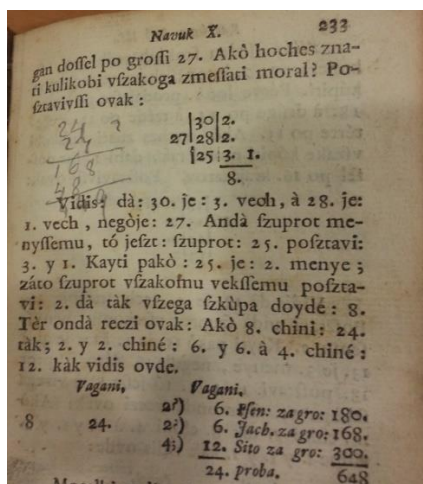 Navuk X. 233
gan dossel po grossi 27. Akò hoches zna-
ti kulikobi vſzakoga zmeſſati moral? Po-
ſztavivſſi ovak :
|30|2.
27|28|2.
|25|3. 1.
8.
24 ?
27
168
48
Vidis: dà: 30. je : 3. vech, à 28. je:
1. vech , negòje: 27. Andà ſzuprot me-
nyſſemu, tó jeſzt : ſzuprot: 25. poſztavi:
3. y 1. Kayti pakò : 25. je: 2. menye ;
záto ſzuprot vſzakomu vekſſemu poſzta-
vi: 2. dà tàk vſzega ſzkùpa doydé : 8.
Tèr ondà reczi ovak: Akò 8. chini: 24.
tàk; 2. y 2. chiné : 6. y 6. à 4. chiné :
12. kàk vidis ovde.
Vagani, Vagani,
2?) 6. Pſen: za gro: 180.
8 24. 2?) 6. Jach. za gro: 168.
4?) 12. Sito za gro: 300.
24. proba. 648